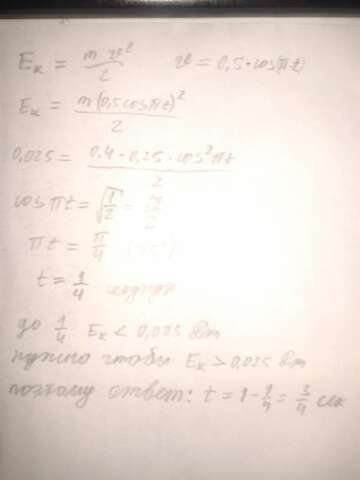 Eₖ = mv²/2 v = 0,5·cos(πt)
Eₖ = m(0,5cosπt)²/2
0,025 = 0,4·0,25·cos²πt/2
cosπt = √(1/2) = √2/2
πt = π/4
t = 1/4 секунды
до 1/4 Eₖ < 0,025 Дж
нужно чтобы Eₖ > 0,025 Дж
поэтому ответ: t = 1-1/4 = 3/4 сек